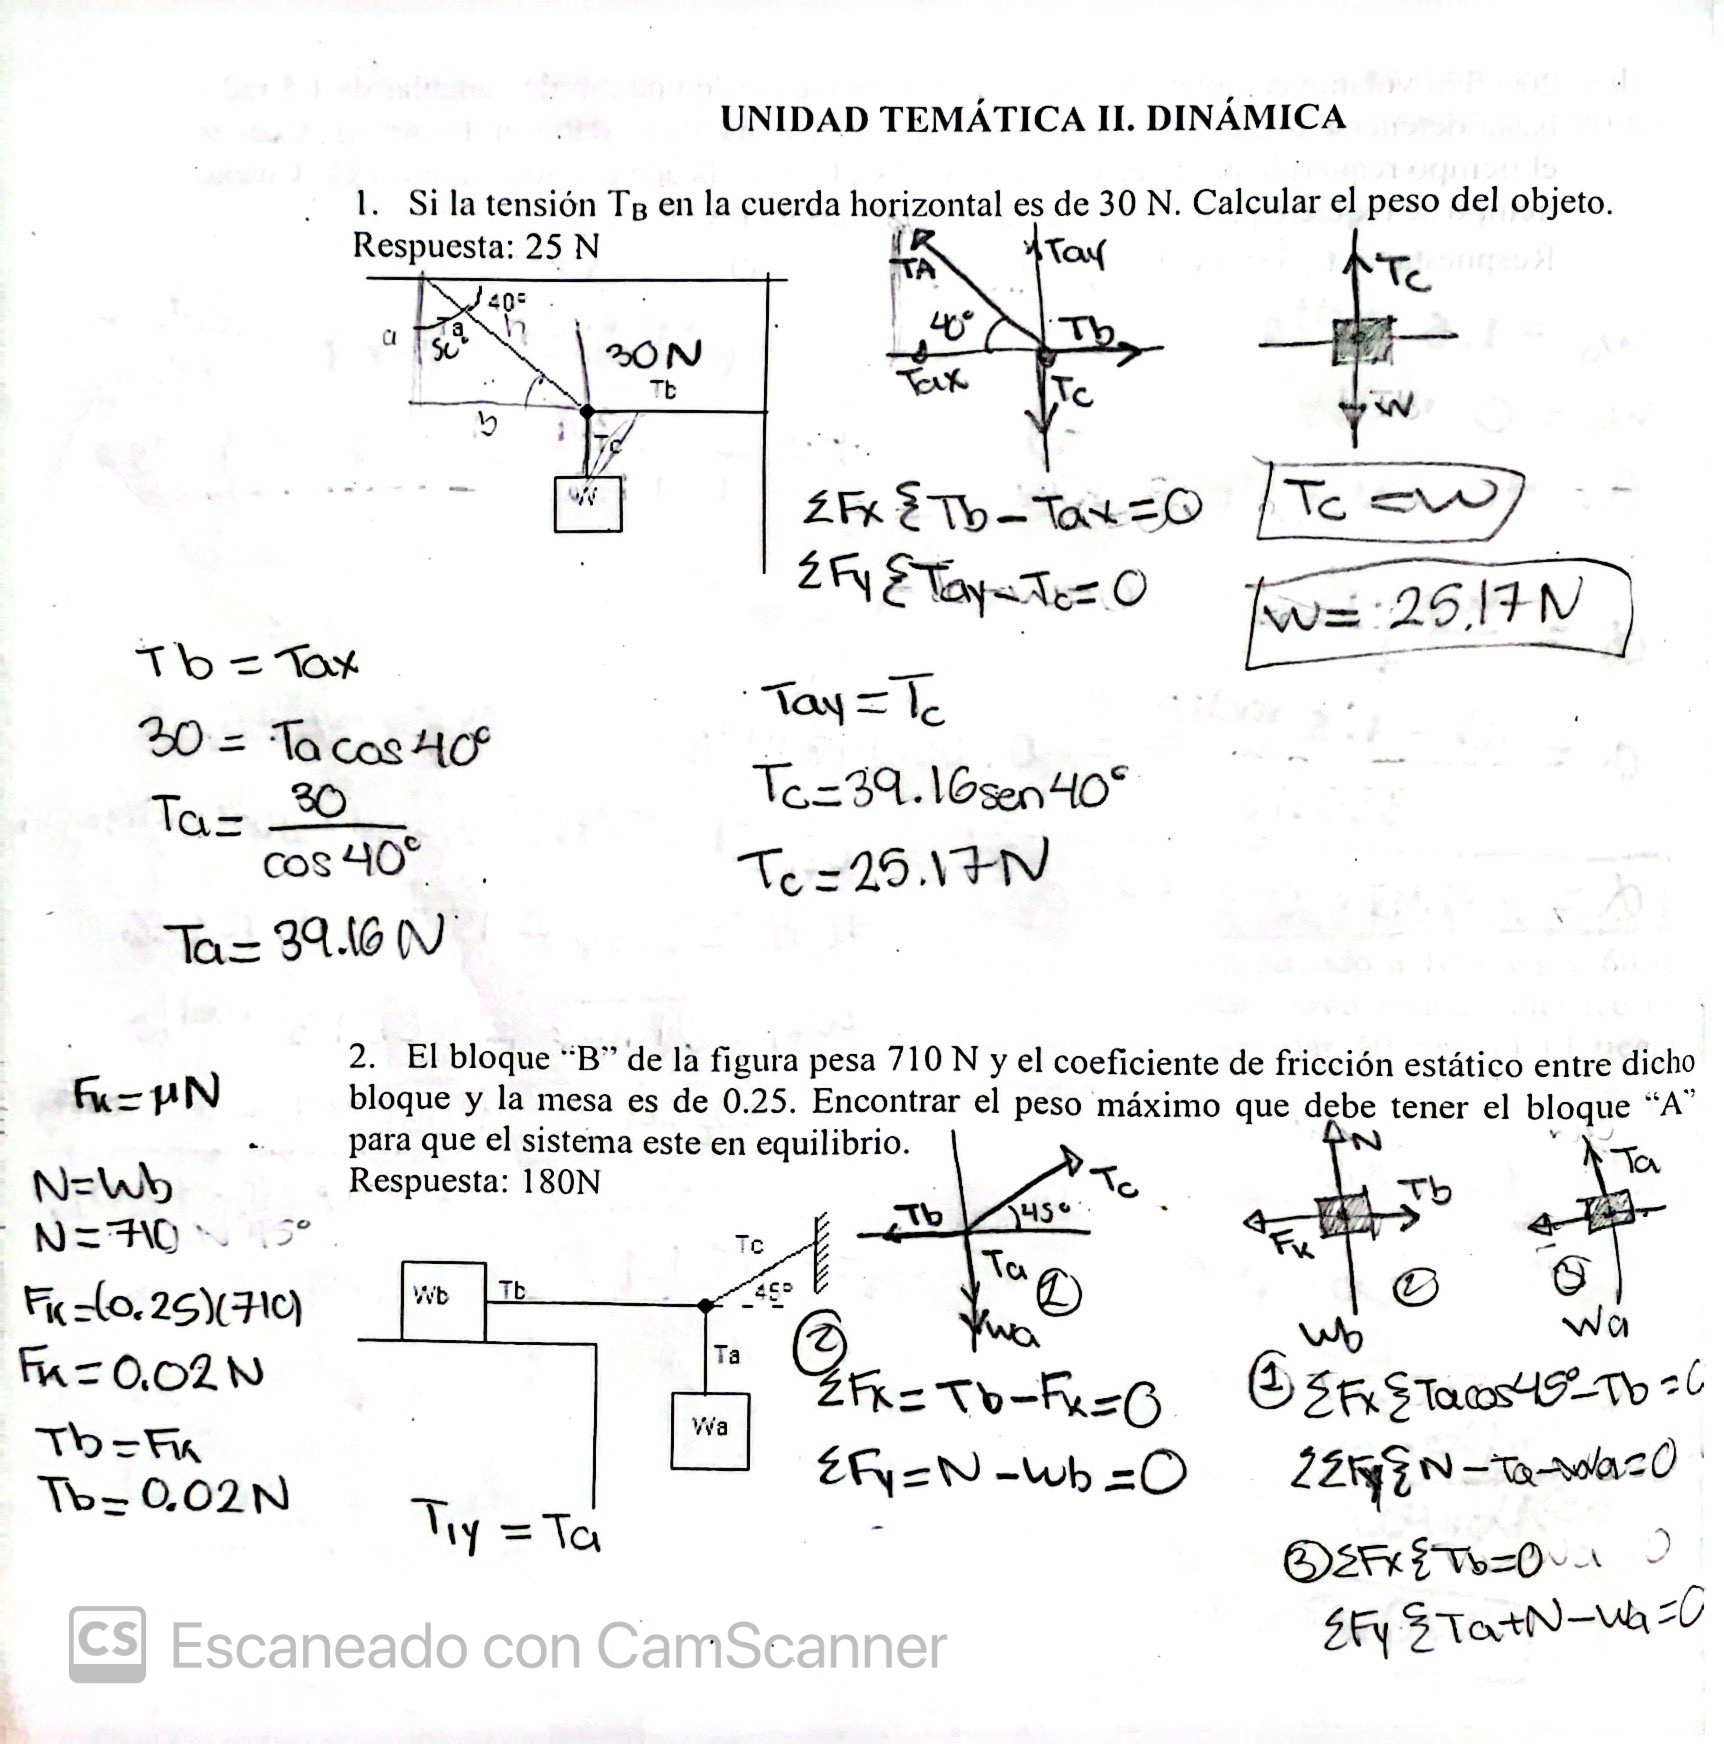 UNIDAD TEMÁTICA II. DINÁMICA
1. Si la tensión TB en la cuerda horizontal es de 30 N. Calcular el peso del objeto.
Respuesta: 25 N
40°
Ta
50°
a
h
b
30N
Tb
Tc
W
TA
Tay
40°
Tb
Tax
Tc
Tc
W
ΣFx { Tb - Tax = 0
ΣFy { Tay - Tc = 0
Tc = W
W = 25.17N
Tb = Tax
30 = Ta cos 40°
Ta = 30
cos 40°
Ta = 39.16 N
Tay = Tc
Tc = 39.16 sen 40°
Tc = 25.17N
2. El bloque “B” de la figura pesa 710 N y el coeficiente de fricción estático entre dicho
bloque y la mesa es de 0.25. Encontrar el peso máximo que debe tener el bloque “A”
para que el sistema este en equilibrio.
Respuesta: 180N
Fk = μN
N = Wb
N = 710
Fk = (0.25)(710)
Fk = 0.02N
Tb = Fk
Tb = 0.02N
Wb
Tb
Tc
45°
Ta
Wa
T1y = Ta
Tb
Tc
45°
Ta
1
Wa
N
Tb
Fk
2
Wb
Ta
3
Wa
2
ΣFx = Tb - Fk = 0
ΣFy = N - Wb = 0
1 ΣFx { Ta cos 45° - Tb = 0
ΣFy { N - Ta - Wa = 0
3 ΣFx { Tb = 0
ΣFy { Ta + N - Wa = 0
CS Escaneado con CamScanner